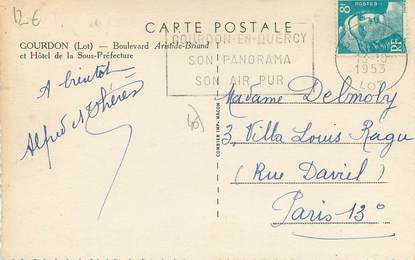 12€
CARTE POSTALE
GOURDON (Lot) — Boulevard Aristide-Briand
et Hôtel de la Sous-Préfecture
GOURDON-EN-QUERCY
SON PANORAMA
SON AIR PUR
POSTES
8F
RF
1953
LOT
A bientôt
Alfred et Thérèse
COMBIER IMP. MACON
Madame Delmoly
3, Villa Louis Ragu
(Rue Daviel)
Paris 13°